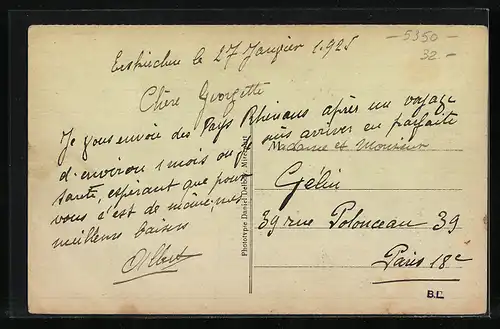 - 5350 -
32. -
Euskirchen le 27 Janvier 1925
Chère Georgette
Je vous envoie des Pays Rhénans après un voyage
d'environ 1 mois ou je suis arriver en parfaite
santé, espérant que pour
vous c'est de même, mes
meilleurs baisers
Albert
Phototypie Daniel Delboy, Mirecourt
Madame et Monsieur
Gélin
39 rue Polonceau 39
Paris 18e
B.L.